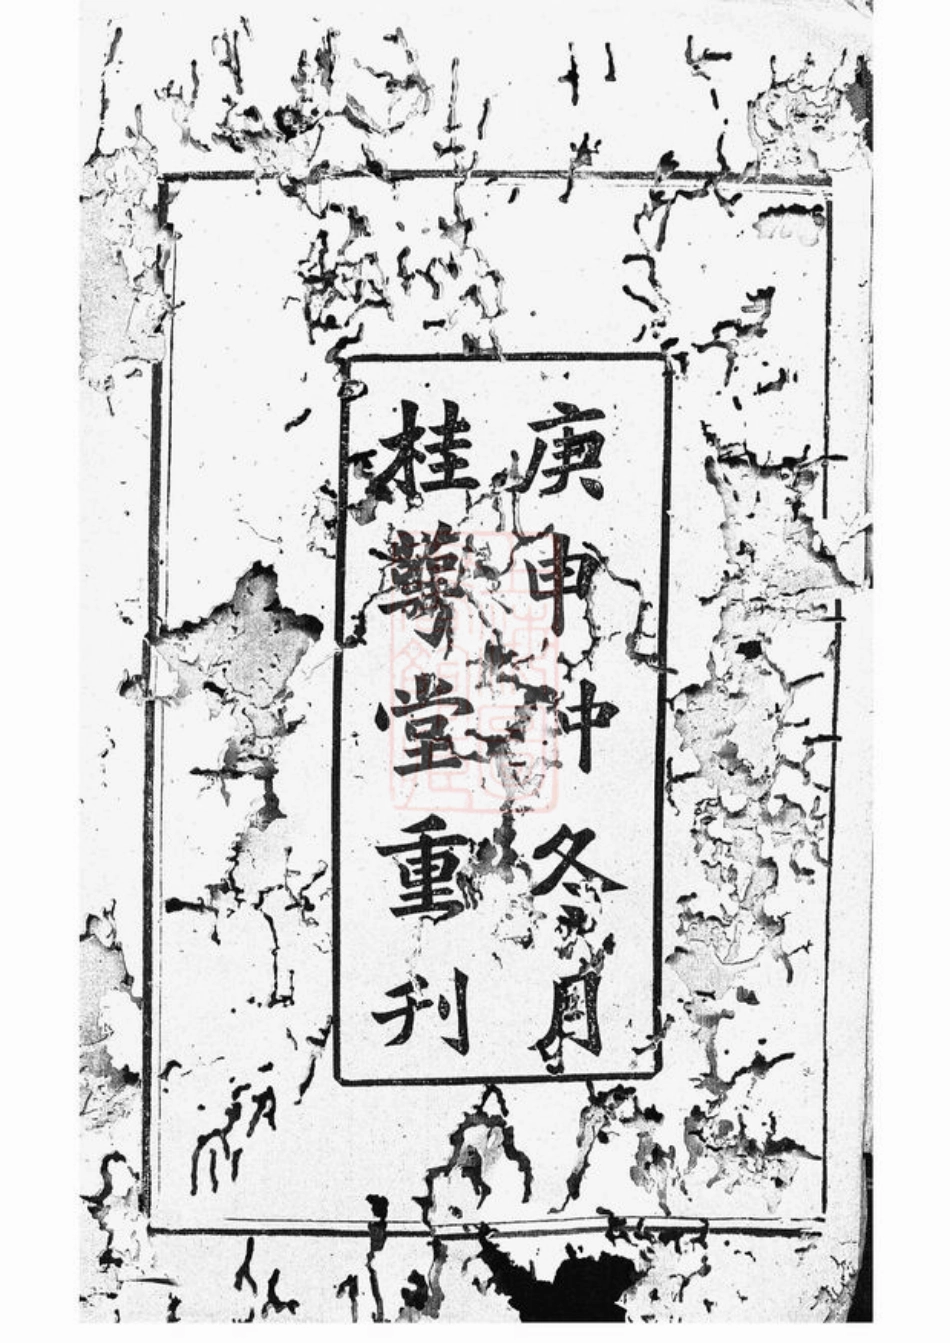 庚申仲冬月
桂萼堂重刊